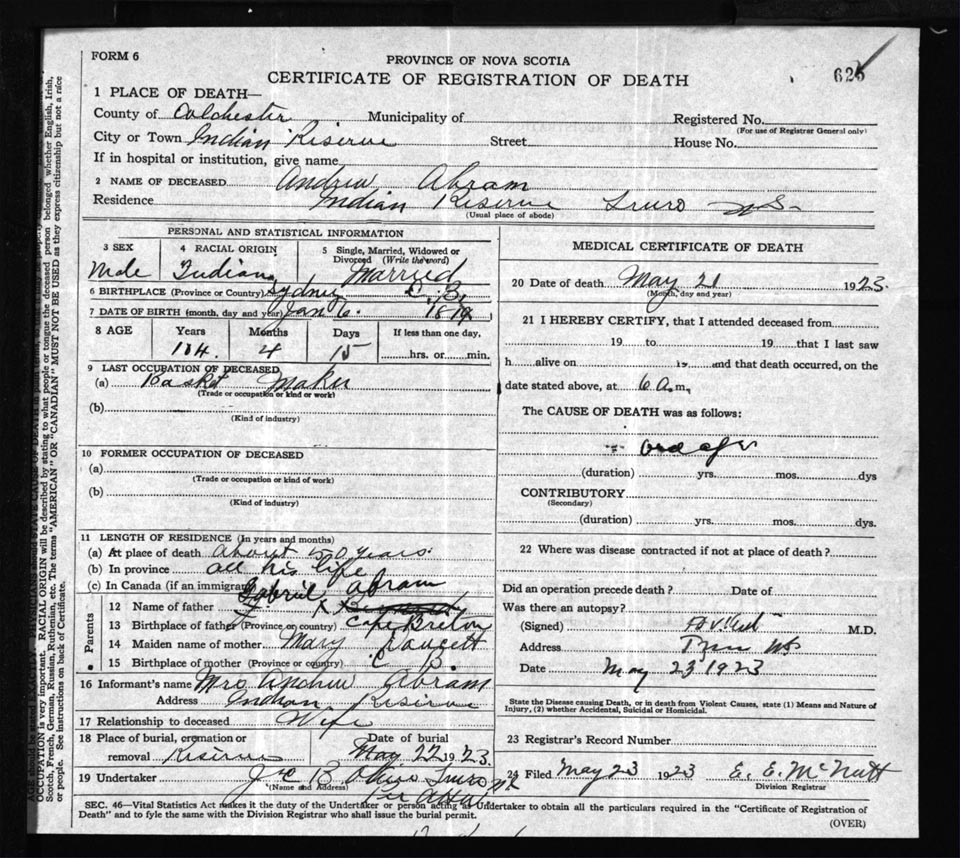 FORM 6
PROVINCE OF NOVA SCOTIA
CERTIFICATE OF REGISTRATION OF DEATH
1 PLACE OF DEATH—
County of Colchester Municipality of Registered No.
(For use of Registrar General only)
City or Town Indian Reserve Street House No.
If in hospital or institution, give name
2 NAME OF DECEASED Andrew Abram
Residence Indian Reserve Truro N.S.
(Usual place of abode)
PERSONAL AND STATISTICAL INFORMATION
3 SEX 4 RACIAL ORIGIN 5 Single, Married, Widowed or Divorced (Write the word)
Male Indian Married
6 BIRTHPLACE (Province or Country) Sydney C.B.
7 DATE OF BIRTH (month, day and year) Jan 6.
8 AGE Years Months Days If less than one day,
104. 4 15 hrs. or min.
9 LAST OCCUPATION OF DECEASED
(a) Basket Maker
(Trade or occupation or kind or work)
(b)
(Kind of industry)
10 FORMER OCCUPATION OF DECEASED
(a)
(Trade or occupation or kind of work)
(b)
(Kind of industry)
11 LENGTH OF RESIDENCE (In years and months)
(a) At place of death about 50 years.
(b) In province all his life
(c) In Canada (if an immigrant)
Parents
12 Name of father Gabriel Abram
13 Birthplace of father (Province or country) Cape Breton
14 Maiden name of mother Mary
15 Birthplace of mother (Province or country) C B.
16 Informant's name Mrs Andrew Abram
Address Indian Reserve
17 Relationship to deceased Wife
18 Place of burial, cremation or removal Reserve Date of burial May 22 1923.
19 Undertaker Truro
(Name and Address)
MEDICAL CERTIFICATE OF DEATH
20 Date of death May 21 1923.
(Month, day and year)
21 I HEREBY CERTIFY, that I attended deceased from
19 to 19 that I last saw
h alive on 19 and that death occurred, on the
date stated above, at 6 a.m.
The CAUSE OF DEATH was as follows:
old age
(duration) yrs. mos. dys
CONTRIBUTORY
(Secondary)
(duration) yrs. mos. dys.
22 Where was disease contracted if not at place of death?
Did an operation precede death? Date of
Was there an autopsy?
(Signed) M.D.
Address Truro NS
Date May 23 1923
State the Disease causing Death, or in death from Violent Causes, state (1) Means and Nature of
Injury, (2) whether Accidental, Suicidal or Homicidal.
23 Registrar's Record Number
24 Filed May 23 1923 E. E. McNutt
Division Registrar
SEC. 46—Vital Statistics Act makes it the duty of the Undertaker or person acting as Undertaker to obtain all the particulars required in the "Certificate of Registration of
Death" and to fyle the same with the Division Registrar who shall issue the burial permit.
(OVER)
OCCUPATION is very important. RACIAL ORIGIN will be described by stating to what people or tongue the deceased person belonged whether English, Irish,
Scotch, French, German, Russian, Ruthenian, etc. The terms "AMERICAN" OR "CANADIAN" MUST NOT BE USED as they express citizenship but not a race
or people. See instructions on back of Certificate.